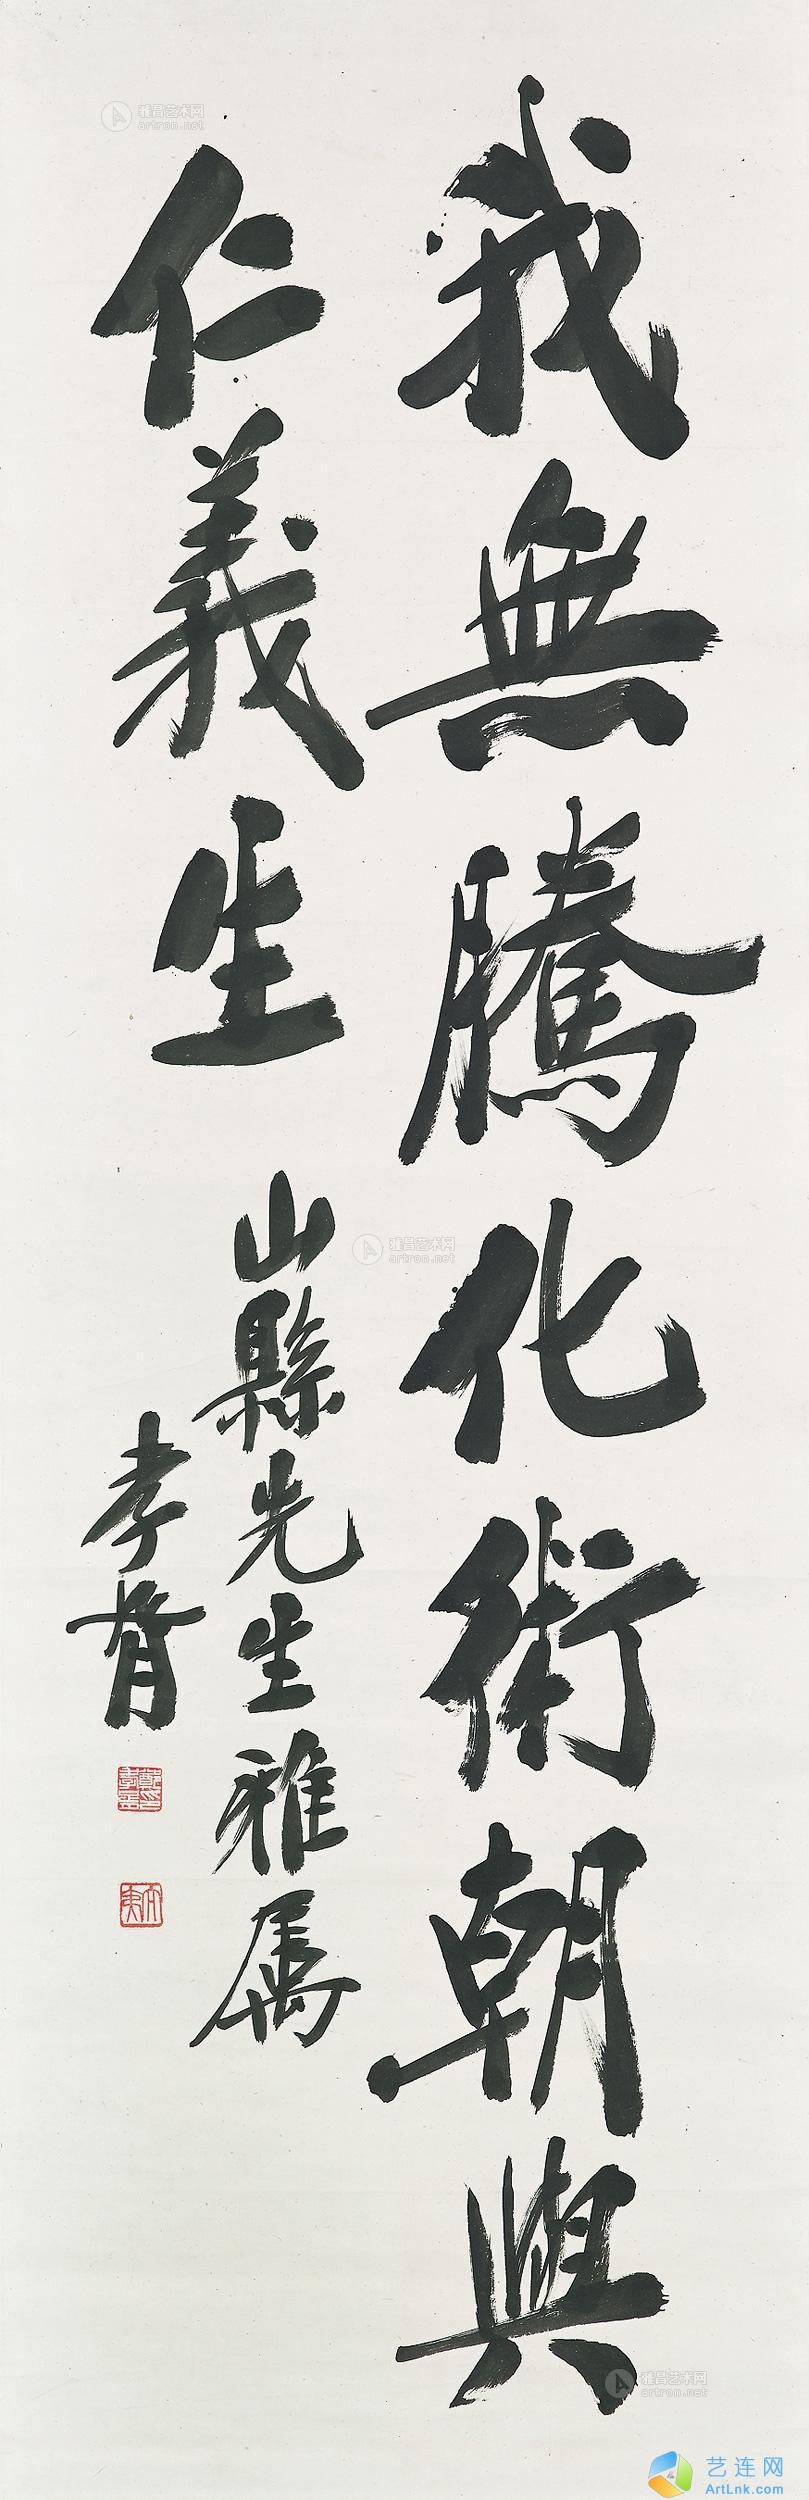 我無騰化術朝與
仁義生
山縣先生雅屬
孝胥
雅昌艺术网
artron.net
雅昌艺术网
artron.net
雅昌艺术网
artron.net
艺连网
ArtLnk.com